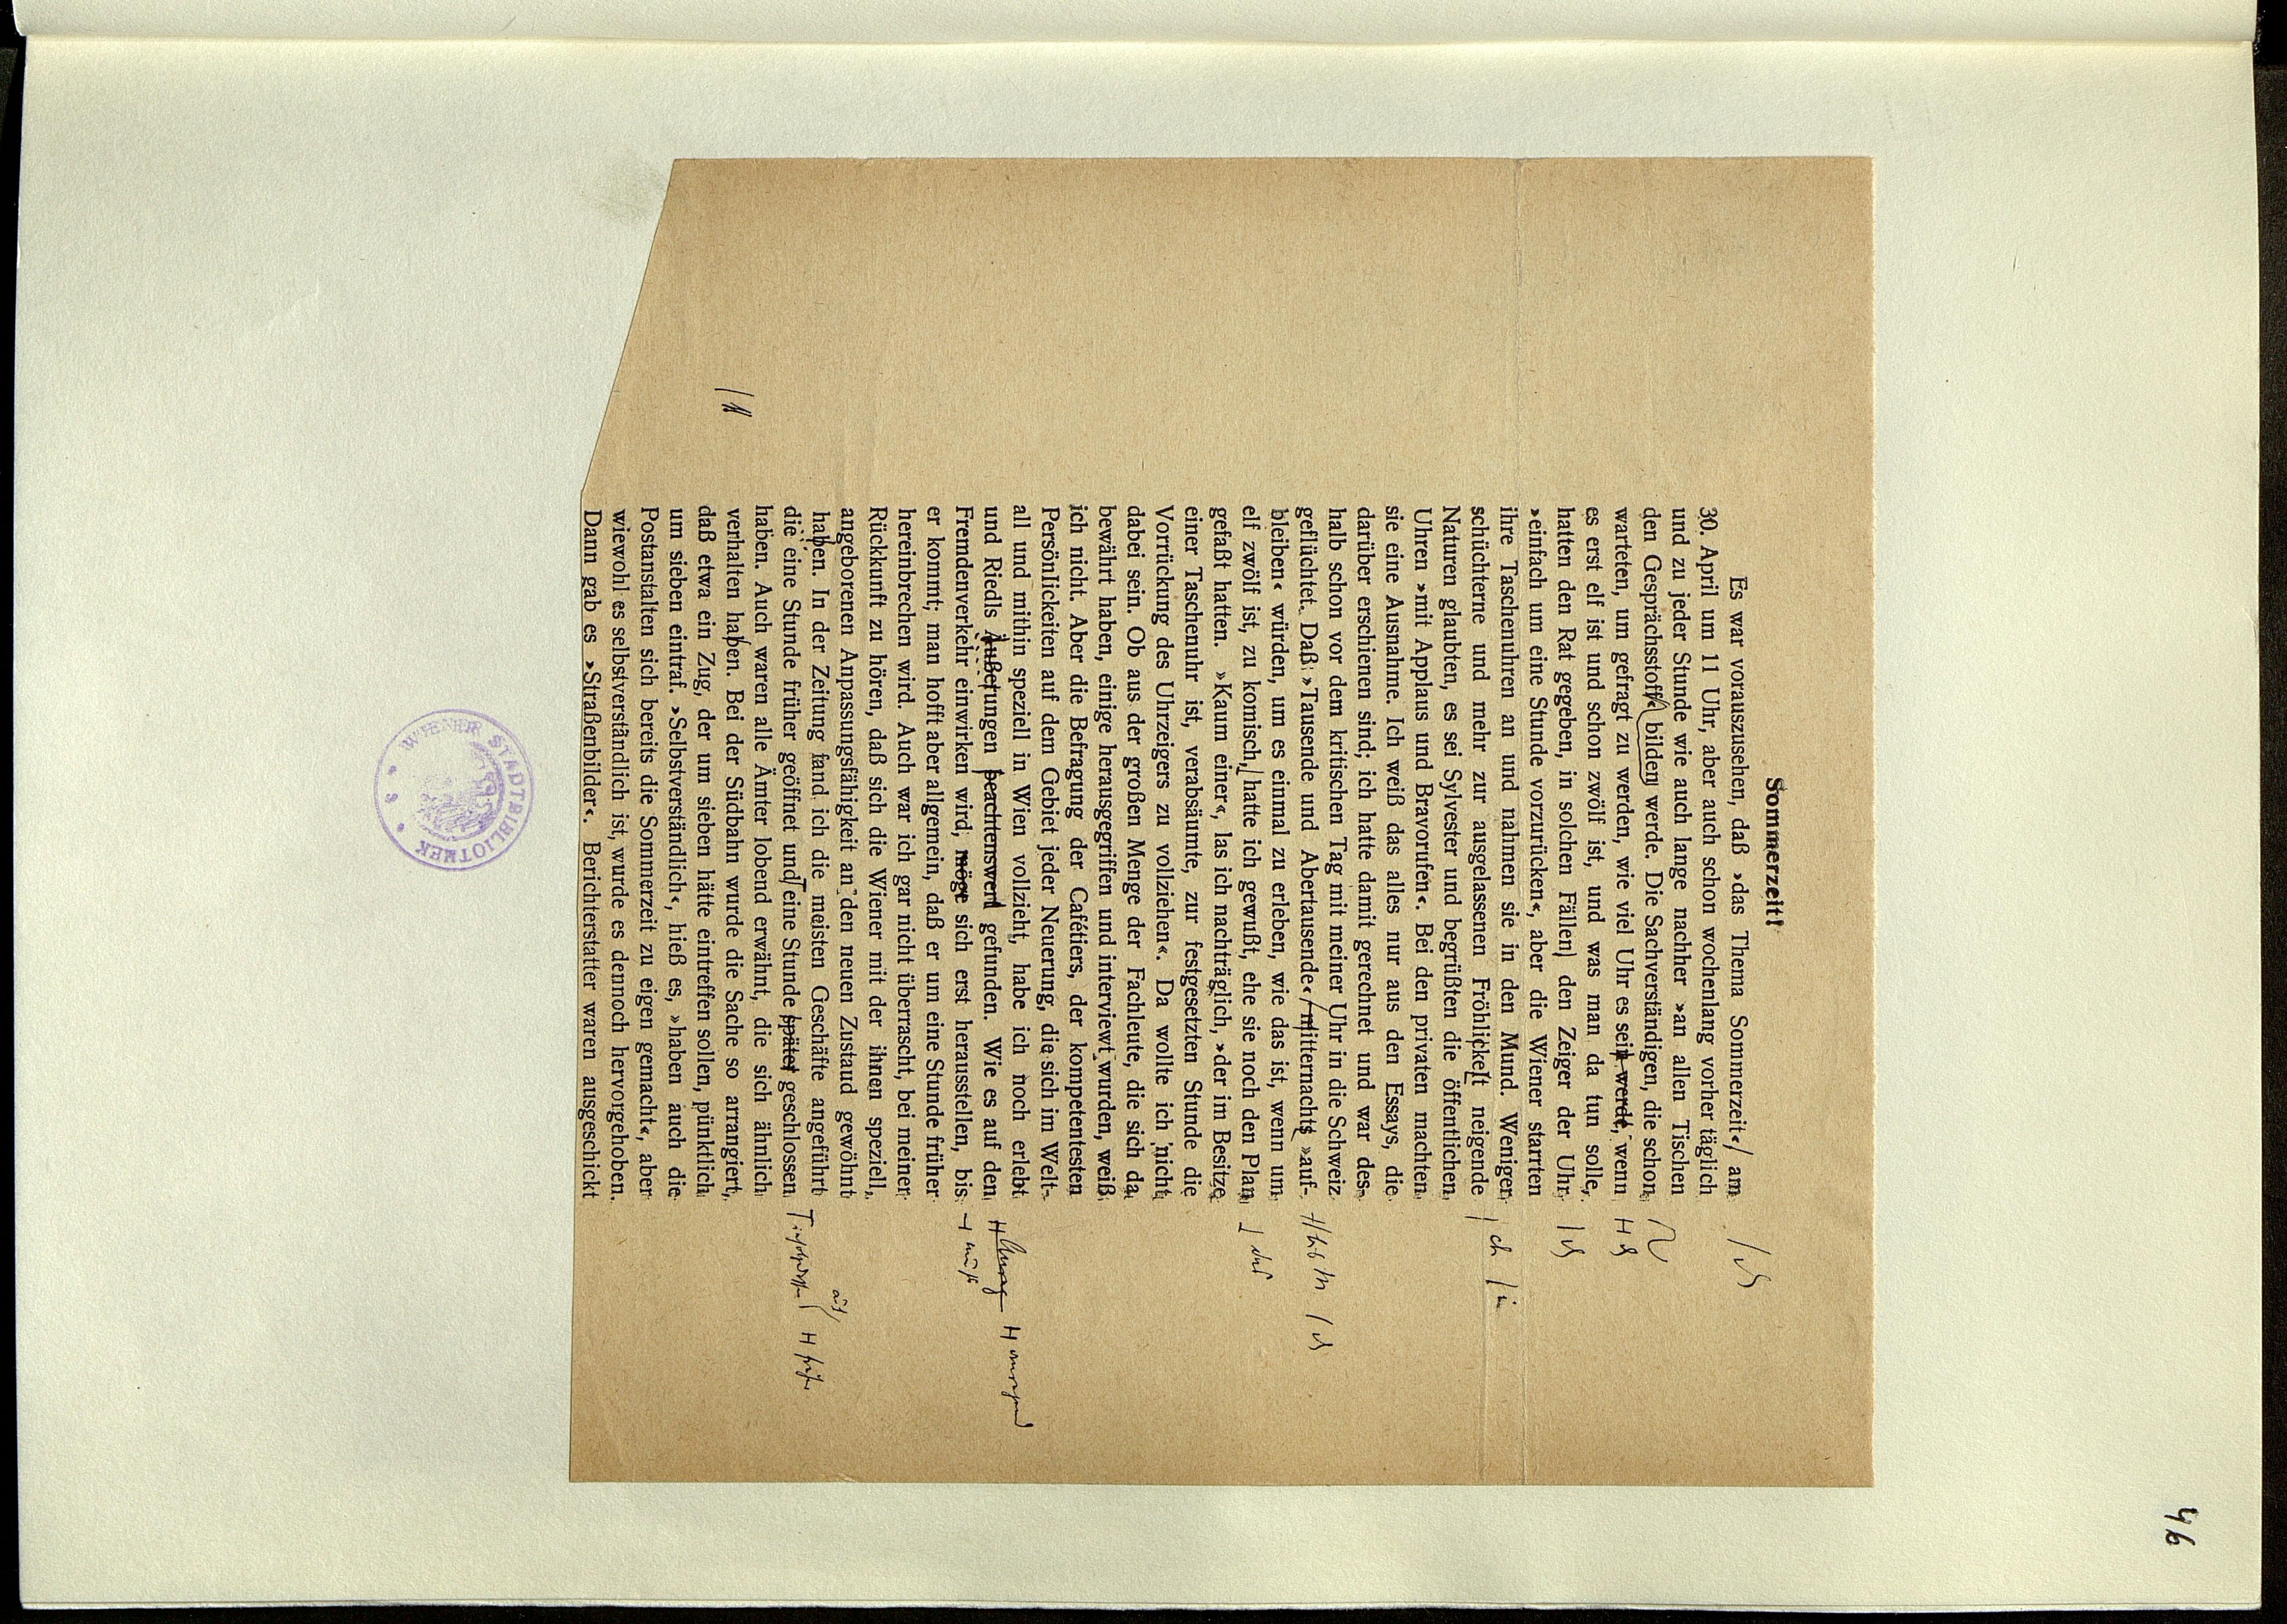 46
Sommerzeit!
Es war vorauszusehen, daß »das Thema Sommerzeit« am
30. April um 11 Uhr, aber auch schon wochenlang vorher täglich
und zu jeder Stunde wie auch lange nachher »an allen Tischen
den Gesprächsstoff« bilden werde. Die Sachverständigen, die schon
warteten, um gefragt zu werden, wie viel Uhr es sein werde, wenn
es erst elf ist und schon zwölf ist, und was man da tun solle,
hatten den Rat gegeben, in solchen Fällen den Zeiger der Uhr
»einfach um eine Stunde vorzurücken«, aber die Wiener starrten
ihre Taschenuhren an und nahmen sie in den Mund. Weniger
schüchterne und mehr zur ausgelassenen Fröhlickelt neigende
Naturen glaubten, es sei Sylvester und begrüßten die öffentlichen
Uhren »mit Applaus und Bravorufen«. Bei den privaten machten
sie eine Ausnahme. Ich weiß das alles nur aus den Essays, die
darüber erschienen sind; ich hatte damit gerechnet und war des-
halb schon vor dem kritischen Tag mit meiner Uhr in die Schweiz
geflüchtet. Daß »Tausende und Abertausende« mitternachts »auf-
bleiben« würden, um es einmal zu erleben, wie das ist, wenn um
elf zwölf ist, zu komisch, hatte ich gewußt, ehe sie noch den Plan
gefaßt hatten. »Kaum einer«, las ich nachträglich, »der im Besitze
einer Taschenuhr ist, verabsäumte, zur festgesetzten Stunde die
Vorrückung des Uhrzeigers zu vollziehen«. Da wollte ich nicht
dabei sein. Ob aus der großen Menge der Fachleute, die sich da
bewährt haben, einige herausgegriffen und interviewt wurden, weiß
ich nicht. Aber die Befragung der Cafétiers, der kompetentesten
Persönlickeiten auf dem Gebiet jeder Neuerung, die sich im Welt-
all und mithin speziell in Wien vollzieht, habe ich noch erlebt
und Riedls Äußerungen beachtenswert gefunden. Wie es auf den
Fremdenverkehr einwirken wird, möge sich erst herausstellen, bis
er kommt; man hofft aber allgemein, daß er um eine Stunde früher
hereinbrechen wird. Auch war ich gar nicht überrascht, bei meiner
Rückkunft zu hören, daß sich die Wiener mit der ihnen speziell
angeborenen Anpassungsfähigkeit an den neuen Zustaud gewöhnt
haben. In der Zeitung fand ich die meisten Geschäfte angeführt
die eine Stunde früher geöffnet und eine Stunde später geschlossen
haben. Auch waren alle Ämter lobend erwähnt, die sich ähnlich
verhalten haben. Bei der Südbahn wurde die Sache so arrangiert,
daß etwa ein Zug, der um sieben hätte eintreffen sollen, pünktlich
um sieben eintraf. »Selbstverständlich«, hieß es, »haben auch die
Postanstalten sich bereits die Sommerzeit zu eigen gemacht«, aber
wiewohl es selbstverständlich ist, wurde es dennoch hervorgehoben.
Dann gab es »Straßenbilder«. Berichterstatter waren ausgeschickt
WIENER STADTBIBLIOTHEK